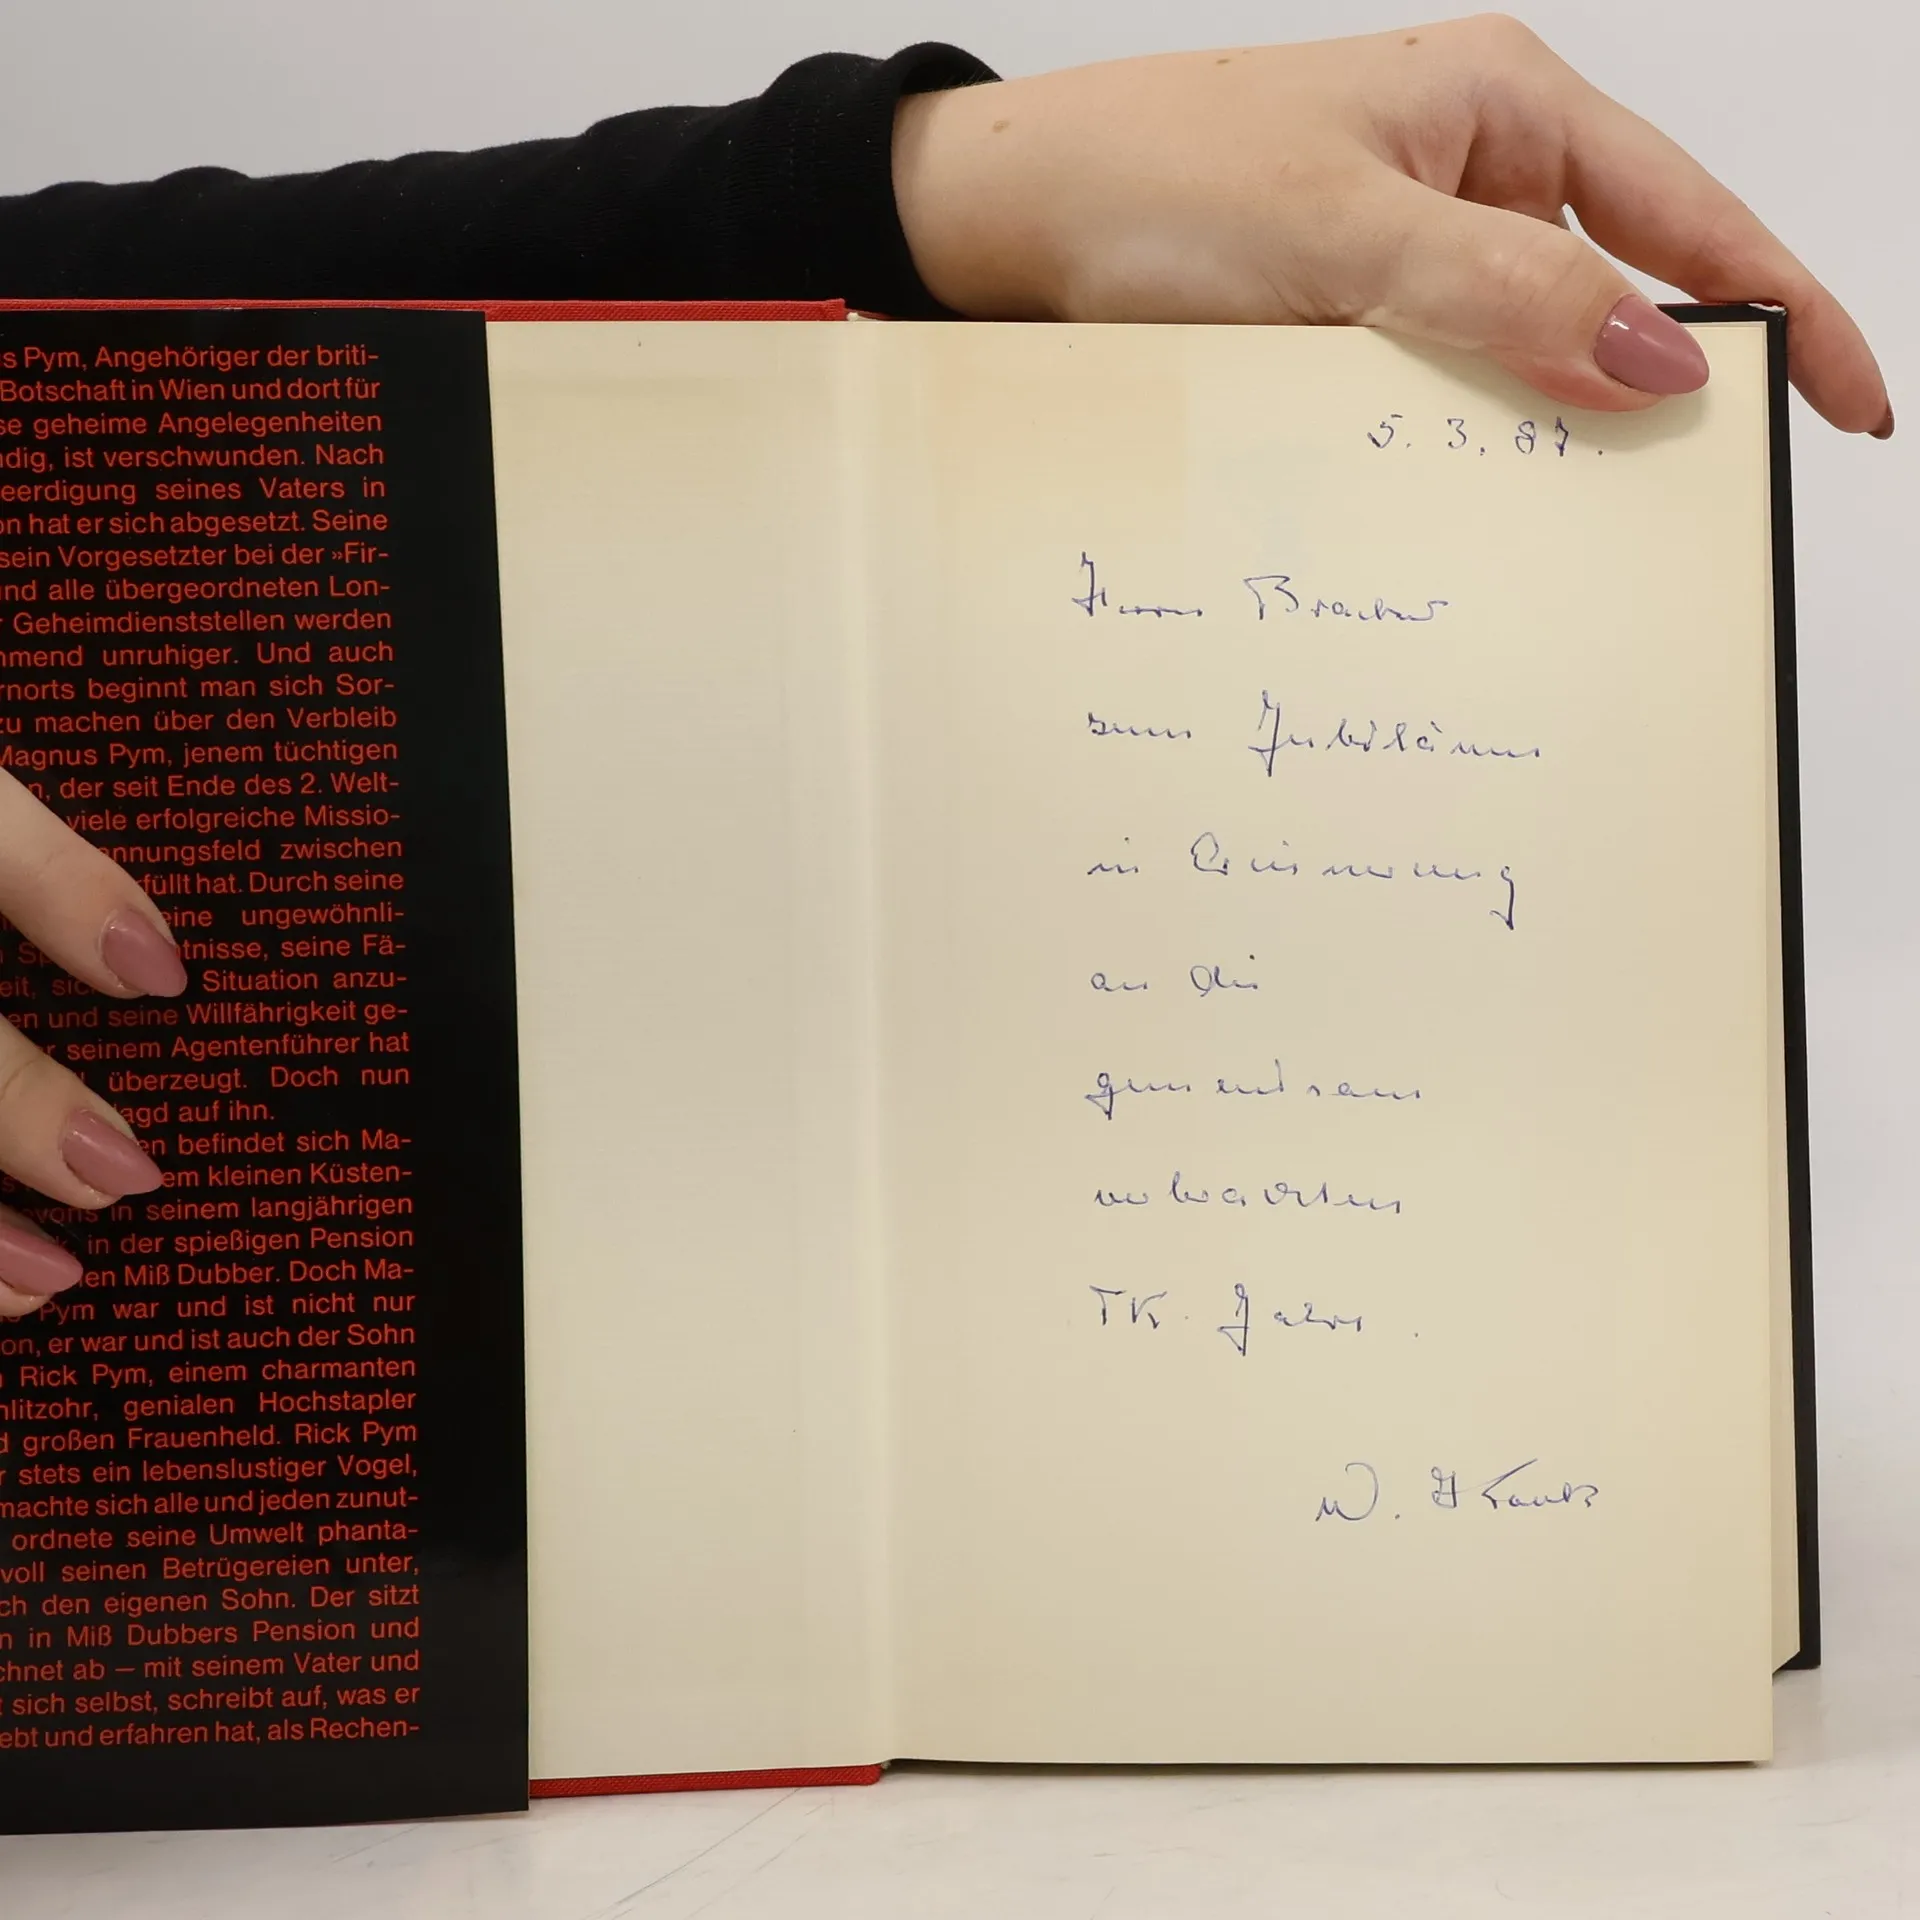 s Pym, Angehöriger der briti-
Botschaft in Wien und dort für
se geheime Angelegenheiten
ndig, ist verschwunden. Nach
eerdigung seines Vaters in
on hat er sich abgesetzt. Seine
sein Vorgesetzter bei der »Fir-
nd alle übergeordneten Lon-
r Geheimdienststellen werden
hmend unruhiger. Und auch
rnorts beginnt man sich Sor-
zu machen über den Verbleib
Magnus Pym, jenem tüchtigen
n, der seit Ende des 2. Welt-
viele erfolgreiche Missio-
annungsfeld zwischen
füllt hat. Durch seine
eine ungewöhnli-
Sp tnisse, seine Fä-
eit, sic Situation anzu-
en und seine Willfährigkeit ge-
er seinem Agentenführer hat
überzeugt. Doch nun
agd auf ihn.
en befindet sich Ma-
em kleinen Küsten-
evons in seinem langjährigen
k, in der spießigen Pension
en Miß Dubber. Doch Ma-
Pym war und ist nicht nur
on, er war und ist auch der Sohn
Rick Pym, einem charmanten
hlitzohr, genialen Hochstapler
d großen Frauenheld. Rick Pym
r stets ein lebenslustiger Vogel,
machte sich alle und jeden zunut-
ordnete seine Umwelt phanta-
voll seinen Betrügereien unter,
ch den eigenen Sohn. Der sitzt
n in Miß Dubbers Pension und
chnet ab – mit seinem Vater und
t sich selbst, schreibt auf, was er
ebt und erfahren hat, als Rechen-
5. 3. 87.
Herrn
zum Jubiläum
in Erinnerung
an die
gemeinsam
verbrachten
TK. Jahre.
W.